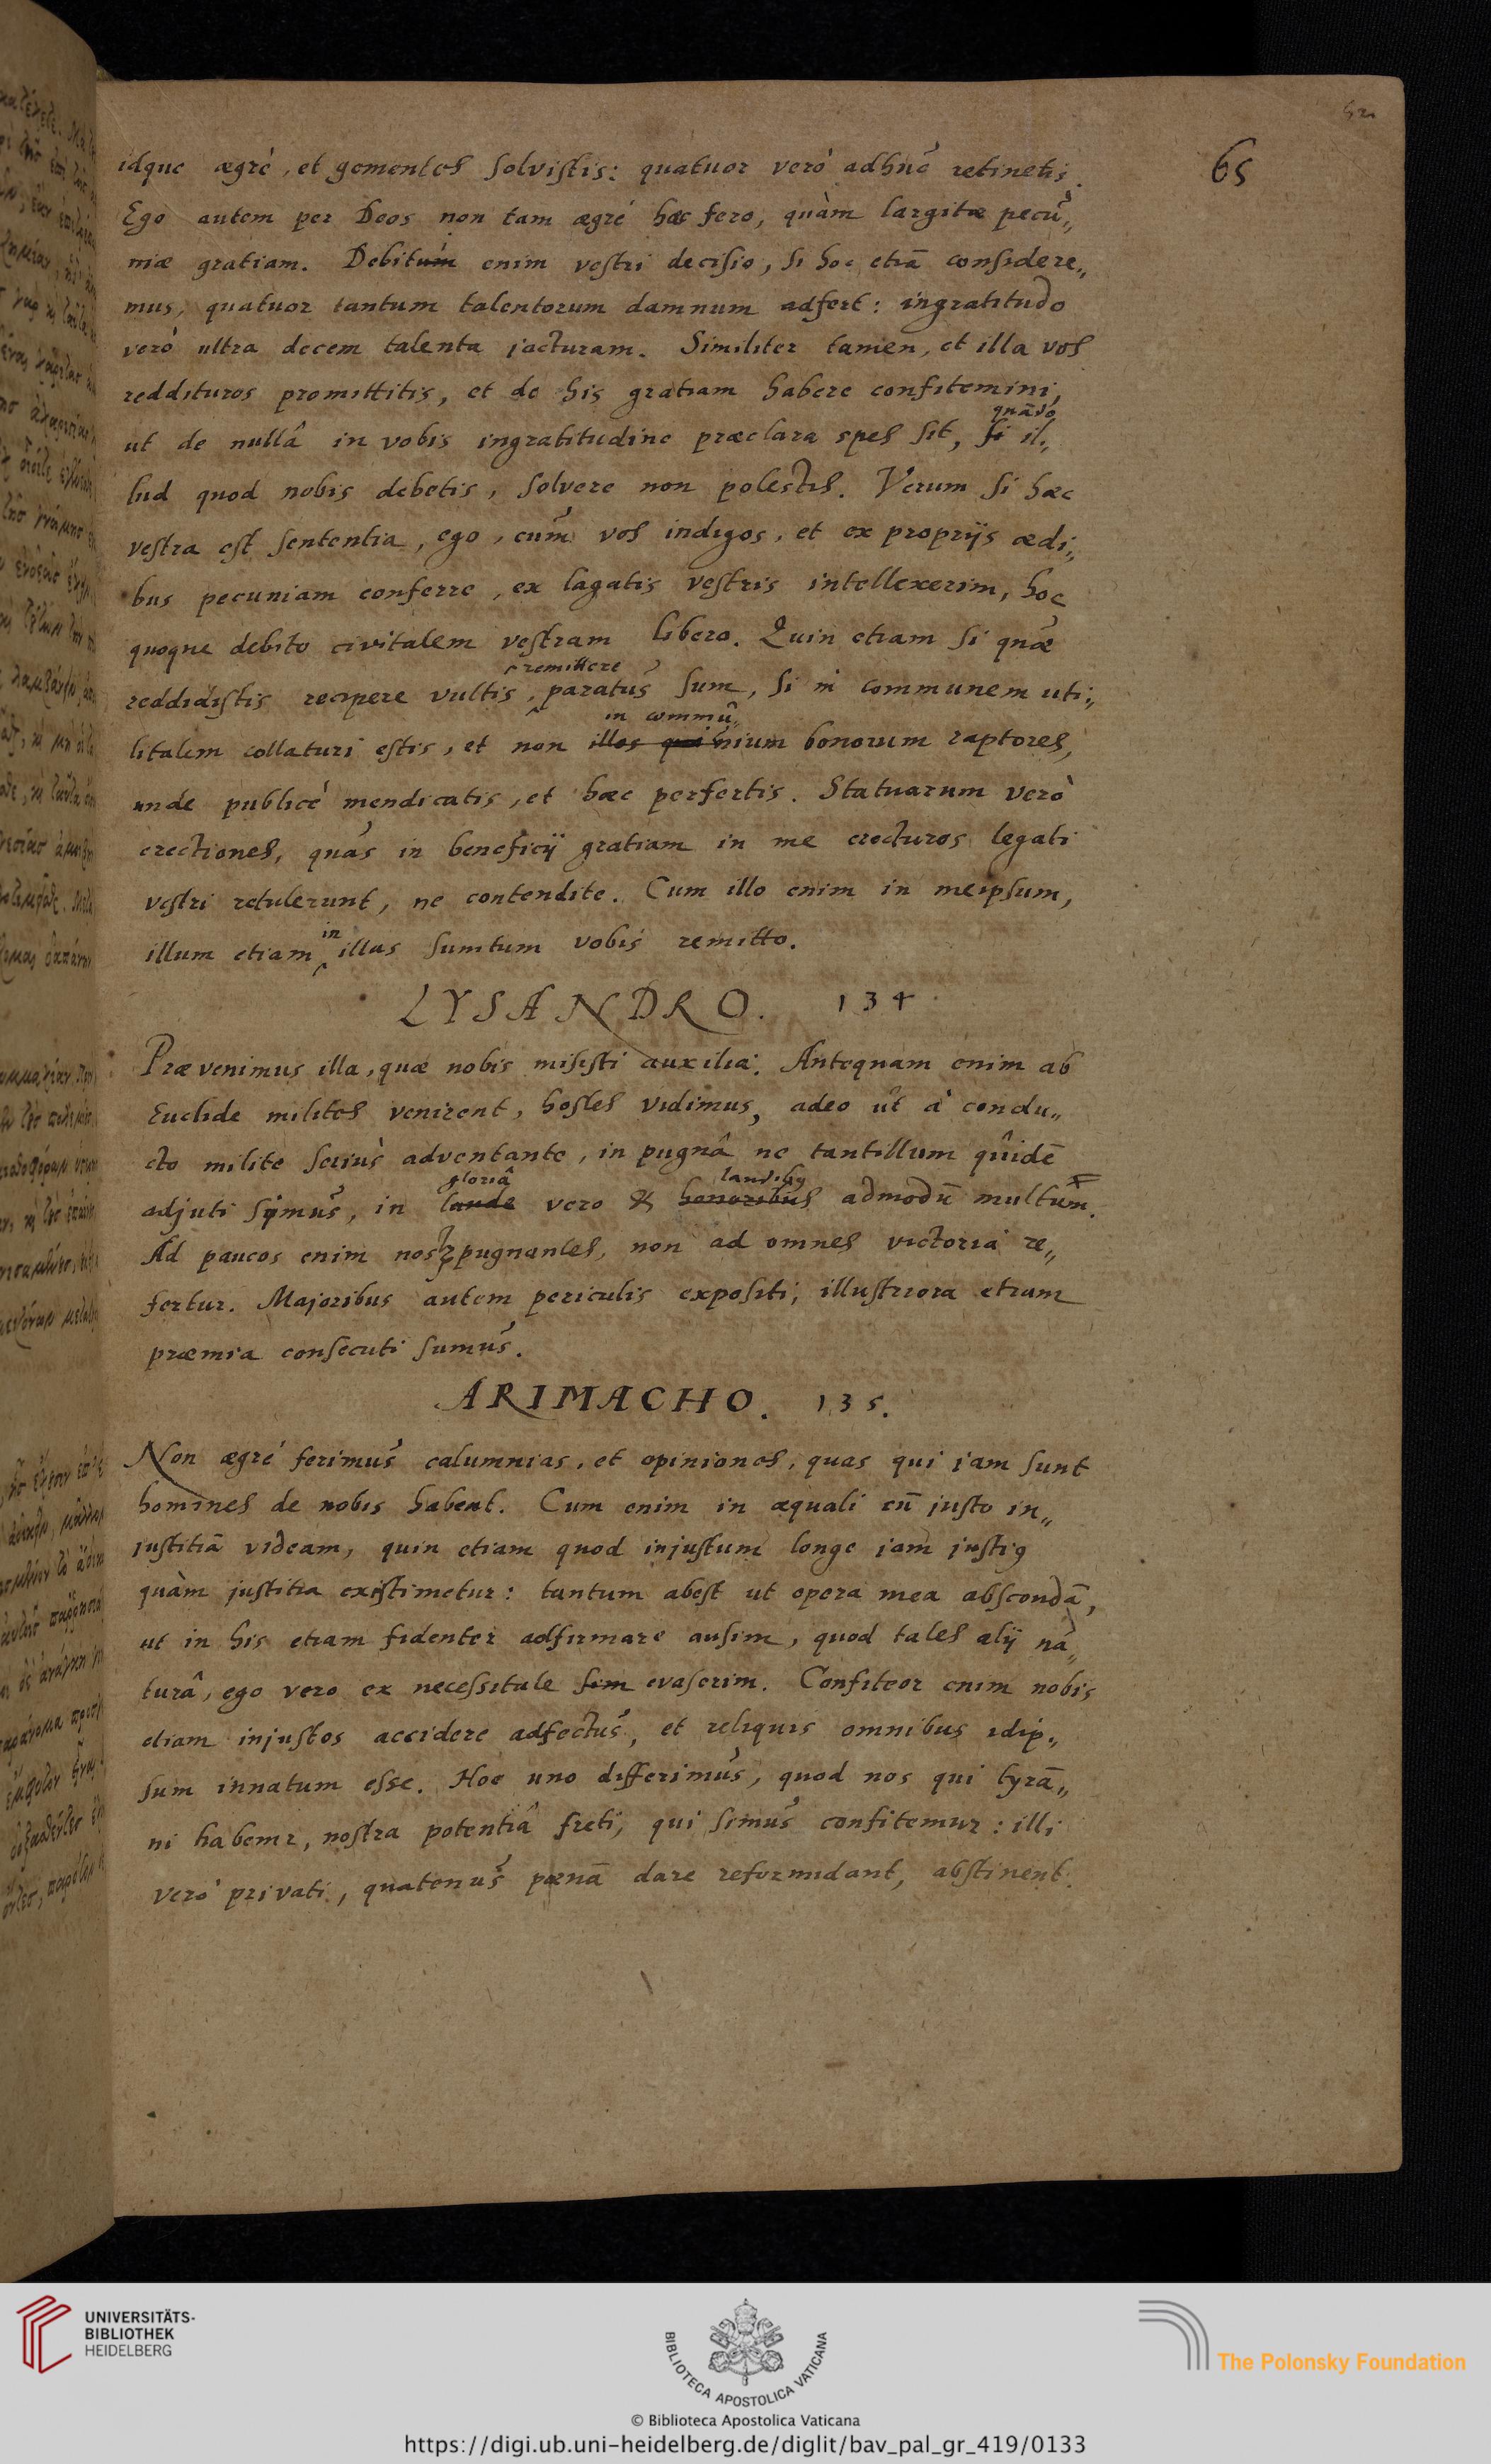 52
65
idque ægrè, et gementes solvistis: quatuor verò adhuc retinetis.
Ego autem per Deos non tam ægrè hæc fero, quàm largitæ pecu„
niæ gratiam. Debitum enim vestri decisio, si hoc etiā considere„
mus, quatuor tantum talentorum damnum adfert: ingratitudo
verò ultra decem talenta jacturam. Similiter tamen, et illa vos
reddituros promittitis, et de his gratiam habere confitemini,
quādo
ut de nullâ in vobis ingratitudine præclara spes sit, si il„
lud quod nobis debetis, solvere non potestis. Verum si hæc
vestra est sententia, ego, cum vos indigos, et ex proprijs ædi„
bus pecuniam conferre, ex lagatis vestris intellexerim, hoc
quoque debito civitatem vestram libero. Quin etiam si quæ
remittere
reddidistis recipere vultis, paratus sum, si in communem uti„
in commū„
litatem collaturi estis, et non illos qui nium bonorum raptores,
unde publicè mendicatis, et hæc perfertis. Statuarum verò
erectiones, quas in beneficij gratiam in me erecturos legati
vestri retulerunt, ne contendite. Cum illo enim in meipsum,
in
illum etiam illas sumtum vobis remitto.
LYSANDRO. 134
Prævenimus illa, quæ nobis misisti auxilia. Antequam enim ab
Euclide milites venirent, hostes vidimus, adeo ut à condu„
cto milite seriùs adventante, in pugnâ ne tantillum quidē
gloriâ laudibꝰ
adjuti simus, in laude vero & honoribus admodū multum.
Ad paucos enim nos pugnantes, non ad omnes victoria re„
fertur. Majoribus autem periculis expositi, illustriora etiam
præmia consecuti sumus.
ARIMACHO. 135.
Non ægrè ferimus calumnias, et opiniones, quas qui jam sunt
homines de nobis habent. Cum enim in æquali cū justo in„
justitiā videam, quin etiam quod injustum longe jam justiꝰ
quàm justitia existimetur: tantum abest ut opera mea abscondā,
ut in his etiam fidenter adfirmare ausim, quod tales alij na„
turâ, ego vero ex necessitate sim evaserim. Confiteor enim nobis
etiam injustos accidere adfectus, et reliquis omnibus idip„
sum innatum esse. Hoc uno differimus, quod nos qui tyrā„
ni habemr, nostra potentiâ freti, qui simus confitemur: illi
verò privati, quatenus pœnā dare reformidant, abstinent.
UNIVERSITÄTS-
BIBLIOTHEK
HEIDELBERG
BIBLIOTECA APOSTOLICA VATICANA
The Polonsky Foundation
© Biblioteca Apostolica Vaticana
https://digi.ub.uni-heidelberg.de/diglit/bav_pal_gr_419/0133